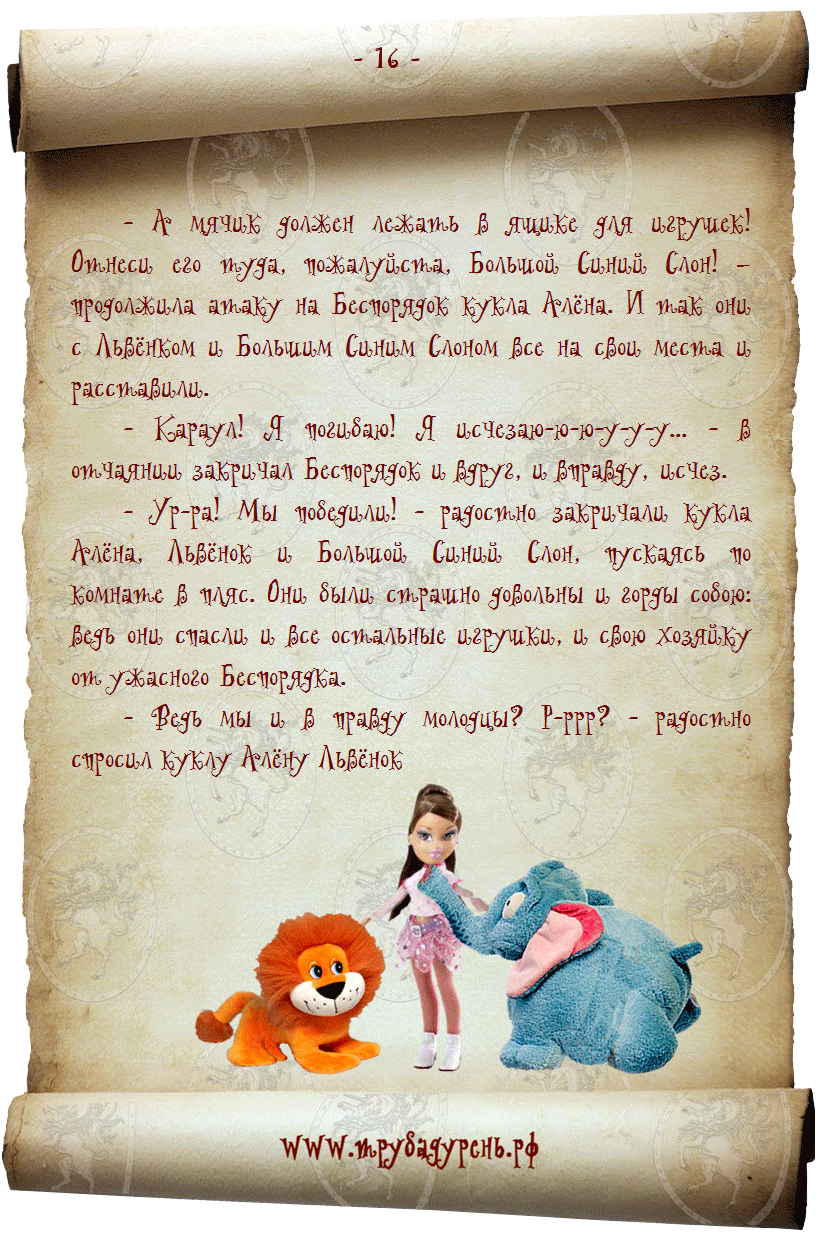 - 16 -
- А мячик должен лежать в ящике для игрушек!
Отнеси его туда, пожалуйста, Большой Синий Слон! –
продолжила атаку на Беспорядок кукла Алёна. И так они
с Львёнком и Большим Синим Слоном все на свои места и
расставили.
- Караул! Я погибаю! Я исчезаю-ю-ю-у-у-у... - в
отчаянии закричал Беспорядок и вдруг, и вправду, исчез.
- Ур-ра! Мы победили! - радостно закричали кукла
Алёна, Львёнок и Большой Синий Слон, пускаясь по
комнате в пляс. Они были страшно довольны и горды собою:
ведь они спасли и все остальные игрушки, и свою хозяйку
от ужасного Беспорядка.
- Ведь мы и в правду молодцы? Р-ррр? - радостно
спросил куклу Алёну Львёнок
www.трубадурень.рф